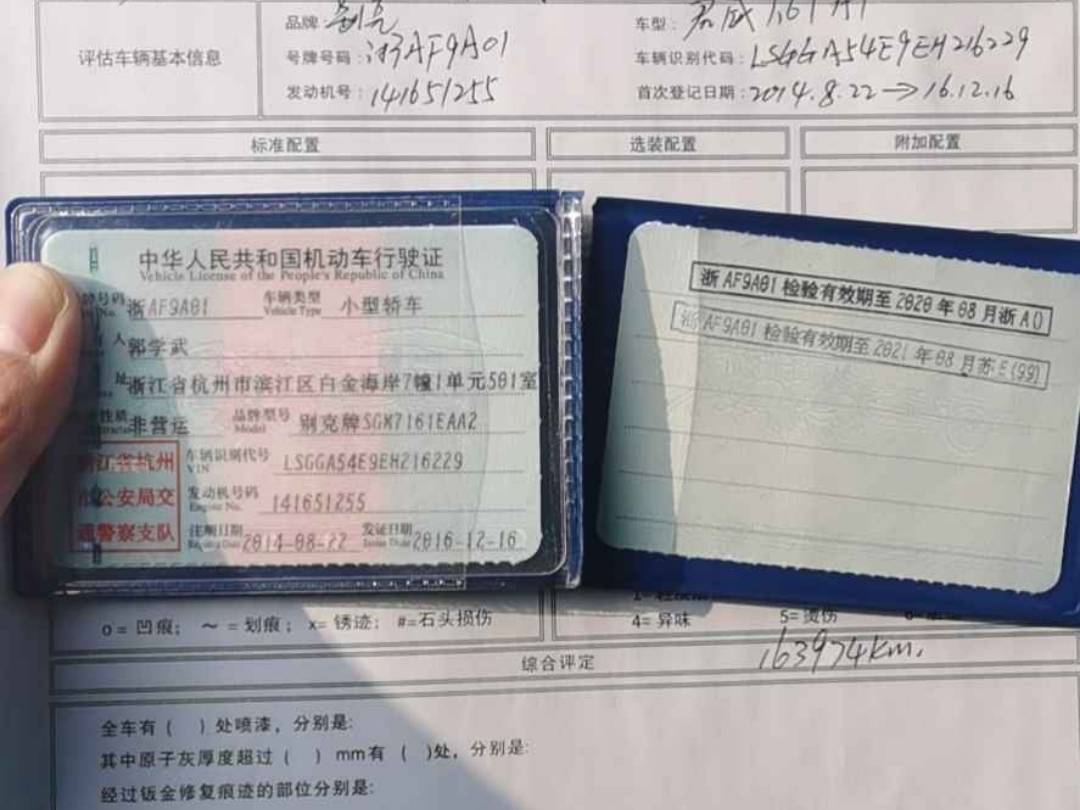 品牌：别克
车型：君威 1.6T AT
评估车辆基本信息
号牌号码：浙AF9A01
车辆识别代码：LSGGA54E9EH216229
发动机号：141651255
首次登记日期：2014.8.22→16.12.16
标准配置
选装配置
附加配置
中华人民共和国机动车行驶证
Vehicle License of the People's Republic of China
号码 浙AF9A01 车辆类型 小型轿车
No. Vehicle Type
人 郭学武
址 浙江省杭州市滨江区白金海岸7幢1单元501室
性质 非营运 品牌型号 别克牌SGM7161EAA2
Model
江省杭州
公安局交
通警察支队
车辆识别代号 LSGGA54E9EH216229
VIN
发动机号码 141651255
Engine No.
注册日期 2014-08-22 发证日期 2016-12-16
Register Date Issue Date
浙AF9A01检验有效期至2020年08月浙A()
浙AF9A01检验有效期至2021年08月苏E(99)
o = 凹痕； ～ = 划痕； x= 锈迹； #=石头损伤
4= 异味 5= 烫伤
综合评定
163974km.
全车有（ ）处喷漆，分别是:
其中原子灰厚度超过（ ）mm有（ ）处，分别是:
经过钣金修复痕迹的部位分别是: